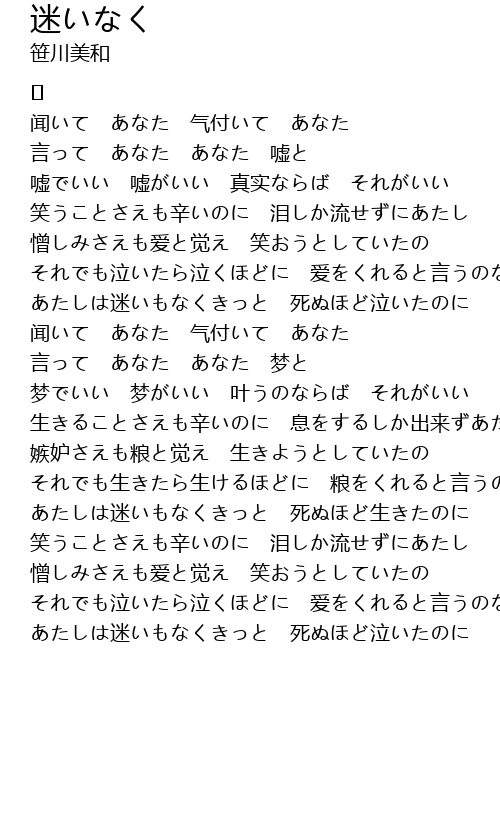 迷いなく
笹川美和
闻いて　あなた　气付いて　あなた
言って　あなた　あなた　嘘と
嘘でいい　嘘がいい　真实ならば　それがいい
笑うことさえも辛いのに　泪しか流せずにあたし
憎しみさえも爱と觉え　笑おうとしていたの
それでも泣いたら泣くほどに　爱をくれると言うのな
あたしは迷いもなくきっと　死ぬほど泣いたのに
闻いて　あなた　气付いて　あなた
言って　あなた　あなた　梦と
梦でいい　梦がいい　叶うのならば　それがいい
生きることさえも辛いのに　息をするしか出来ずあた
嫉妒さえも粮と觉え　生きようとしていたの
それでも生きたら生けるほどに　粮をくれると言うの
あたしは迷いもなくきっと　死ぬほど生きたのに
笑うことさえも辛いのに　泪しか流せずにあたし
憎しみさえも爱と觉え　笑おうとしていたの
それでも泣いたら泣くほどに　爱をくれると言うのな
あたしは迷いもなくきっと　死ぬほど泣いたのに